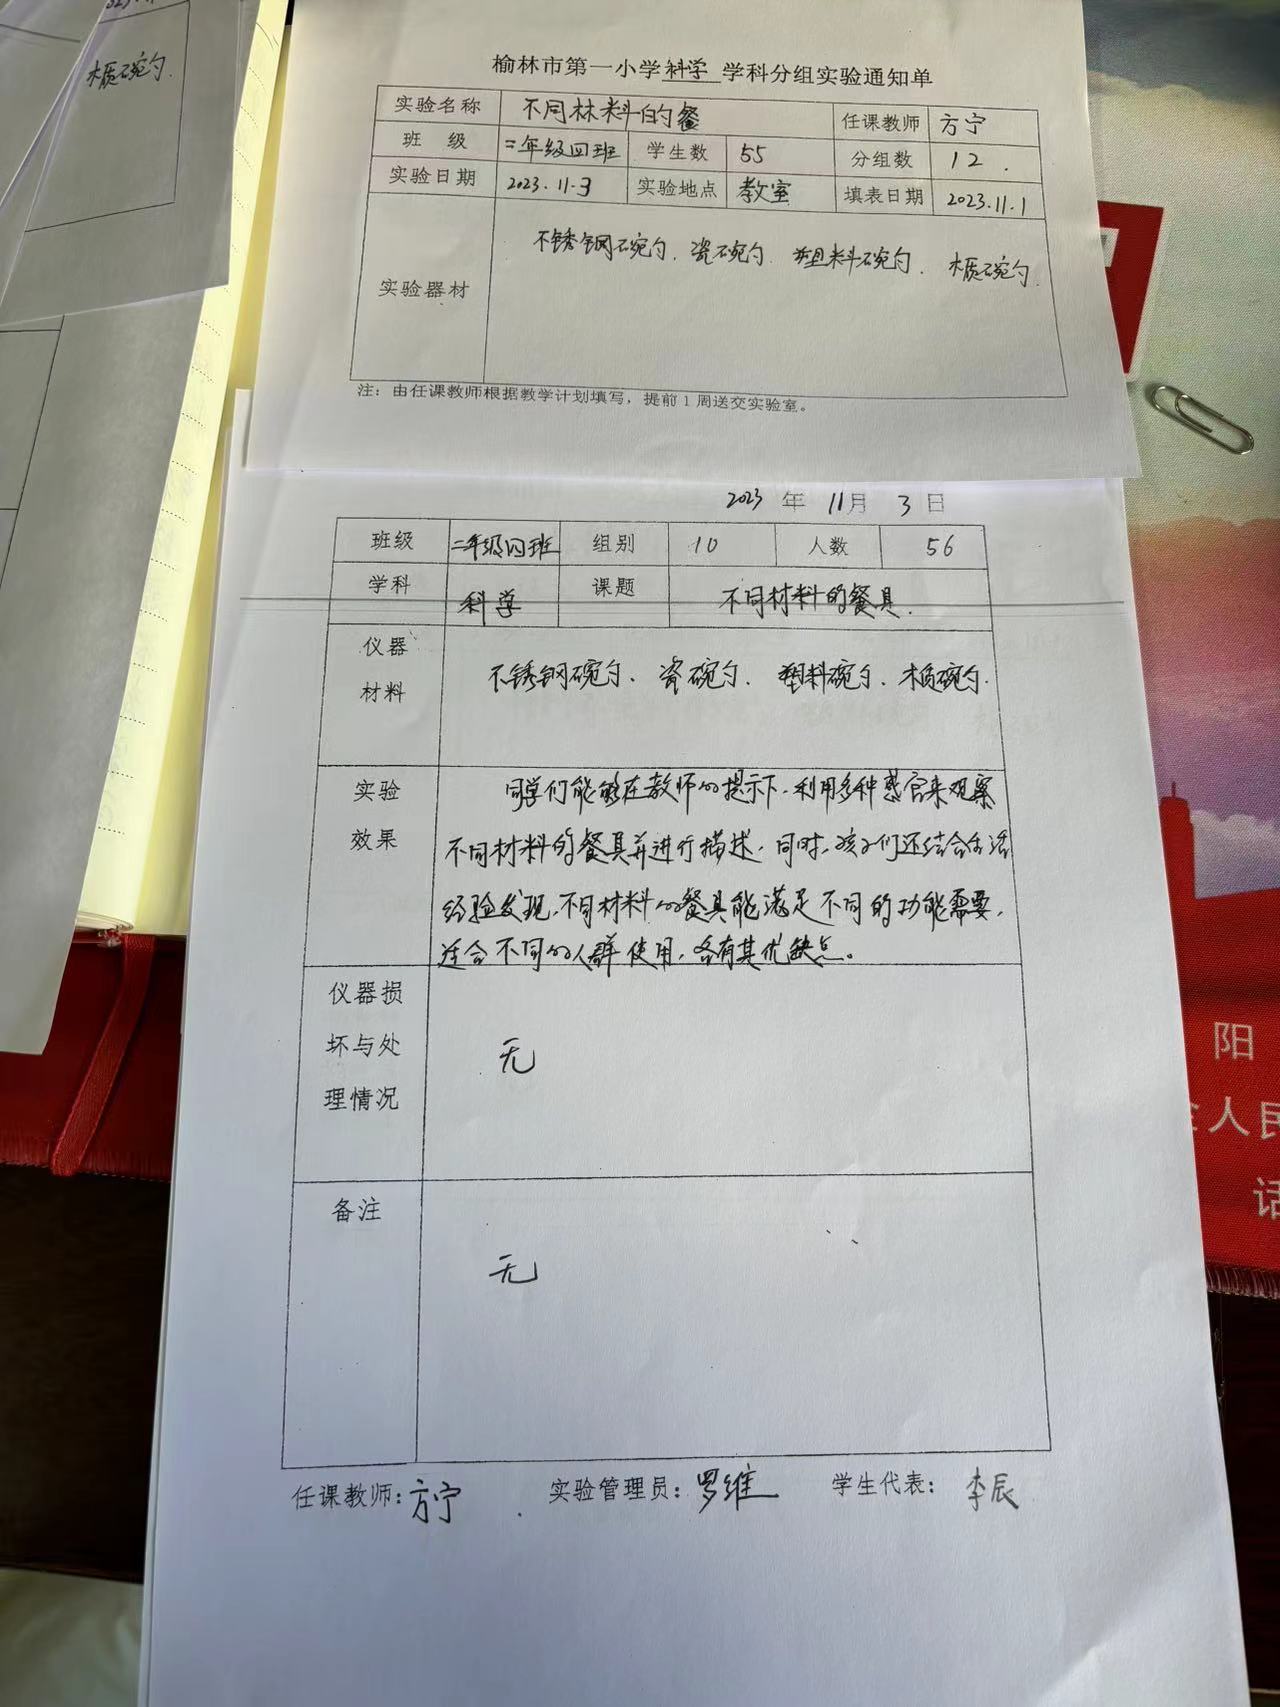 木质碗勺.
榆林市第一小学科学学科分组实验通知单
实验名称 不同材料的餐 任课教师 方宁
班 级 二年级四班 学生数 55 分组数 12 .
实验日期 2023.11.3 实验地点 教室 填表日期 2023.11.1
实验器材 不锈钢碗勺、瓷碗勺、塑料碗勺、木质碗勺.
注：由任课教师根据教学计划填写，提前1周送交实验室。
2023 年 11月 3 日
班级 二年级四班 组别 10 人数 56
学科 科学 课题 不同材料的餐具.
仪器
材料
不锈钢碗勺、瓷碗勺、塑料碗勺、木质碗勺.
实验
效果
同学们能够在教师的提示下，利用多种感官来观察
不同材料的餐具并进行描述，同时，孩子们还结合生活
经验发现，不同材料的餐具能满足不同的功能需要，
适合不同的人群使用，各有其优缺点。
仪器损
坏与处
理情况
无
备注
无
任课教师：方宁 实验管理员：罗维 学生代表：李辰
阳
人民
话